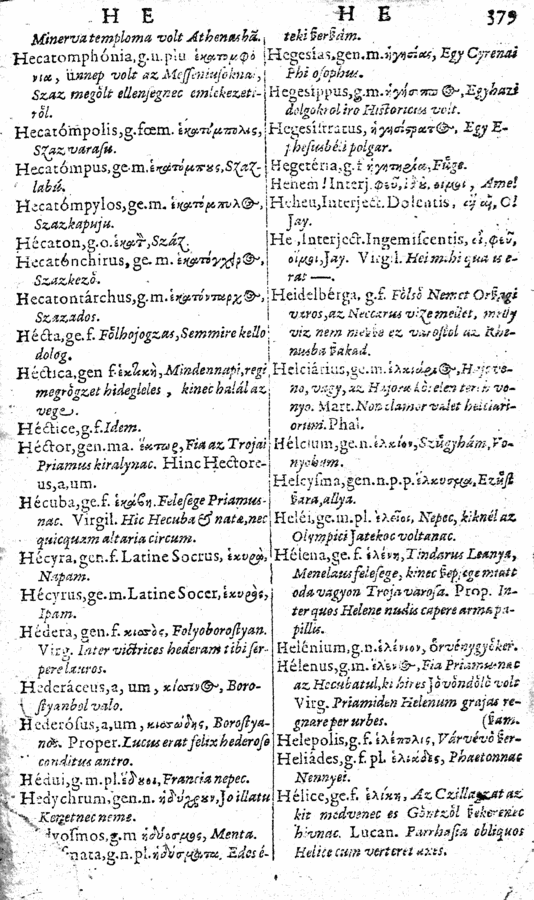 H E
H E 379
Minerva temploma volt Athenasbã.
Hecatomphónia,g.n.plu ἑκατομφό
νια, ünnep volt az Meſſeniuſokna.,
Szaz megölt ellenſegnec emlekezeti-
röl.
Hecatómpolis,g.fœm. ἑκατόμπολις,
Szaz varaſu.
Hecatómpus,ge.m. ἑκατόμπους,Szaz
labú.
Hecatómpylos,ge.m. ἑκατόμπυλος,
Szazkapuju.
Hécaton,g.o. ἑκατὸ, Száz.
Hecatónchirus, ge. m. ἑκατόγχειρος,
Szazkezö.
Hecatontárchus,g.m. ἑκατόνταρχος,
Szazados.
Hécta,ge.f. Fölhojogzas,Semmire kellö
dolog.
Héctica,gen f. ἑκτικὴ, Mindennapi,regi
megrögzet hidegleles , kinec halál az
vege.
Héctice,g.f.Idem.
Héctor,gen.ma. ἕκτωρ, Fia az Trojai
Priamus kiralynac. Hinc Hectore-
us,a,um.
Hécuba,ge.f. ἑκάβη. Feleſege Priamus-
nac. Virgil. Hic Hecuba & natæ,nec
quicquam altaria circum.
Hécyra, gen.f. Latine Socrus, ἑκυρὰ,
Napam.
Hécyrus,ge.m.Latine Socer, ἑκυρὸς,
Ipam.
Hédera, gen.f. κισσὸς, Folyoboroſtyan.
Virg. Inter victrices hederam tibi ſer-
pere lauros.
Hederáceus,a, um , κίσσινος, Boro-
ſtyanbol valo.
Hederóſus,a,um , κισσώδης, Boroſtya-
nos. Proper. Lucus erat felix hederoſo
conditus antro.
Hédui,g.m.pl. ἑδουοι, Francia nepec.
Hedychrum,gen.n. ἡδύχρουν, Jo illatu
Kenetnec neme.
dyoſmos,g.m ἡδύοσμος, Menta.
ſmata,g.n.pl. ἡδύσματα. Edes é-
teki
Hegesías,gen.m. ἡγησίας, Egy Cyrenai
Phi oſophus.
Hegesippus,g.m. ἡγήσιππος, Egyhazi
dolgokrol iro Hiſtoricus volt.
Hegesiſtratus, ἡγησίστρατος, Egy E-
pheſusbéli polgar.
Hegetéria,g.f ἡγητηρία, Füge.
Henem! Interj. φεῦ, οιμοι , Ame!
Heheu,Interject. Dolentis, O!
Jay.
He ,Interject.Ingemiſcentis, φεῦ,
οιμοι, Jay. Virgil. Hei mihi qua is e-
rat —.
Heidelbérga, g.f. Fölsö Nemet Orſzagi
varos,az Neccarus vize mellet, melly
viz nem meſsze ez varoſtol az Rhe-
nusba ſzakad.
Helciárius,ge.m. ἑλκιάριος, Hajo vo-
no, vagy, az Hajora kötelen vo-
nyo. Mart. Non clamor valet helciari-
orum. Phal.
Hélcium,ge.n. ἑλκίον, Szügyhám, Vo-
nyoham.
Helcyſma,gen.n.p.p. ἕλκυσμα, Ezüſt
ſzara,allya.
Heléi,ge.m.pl. ἑλεῖοι, Nepec, kiknél az
Olympici Jatekoc voltanac.
Hélena,ge.f. ἑλένη, Tindarus Leanya,
Menelaus feleſege, kinec ſzepſege miatt
oda vagyon Troja varoſa. Prop. In-
ter quos Helene nudis capere arma pa-
pillis.
Helénium,g.n. ἑλένιον, Örvénygyöker.
Hélenus,g.m. ἕλενος, Fia Priamuſnac
az Hecubatul,ki hires Jövöndölö volt
Virg. Priamiden Helenum grajas re-
gnare per urbes. (ſzam.
Helepolis,g.f. ἑλέπολις, Várvévö ſzer-
Heliádes,g.f.pl. ἑλιάδες, Phaetonnac
Nennyei.
Hélice,ge.f. ἑλίκη, Az Czillagzat az
kit medvenec es Göntzöl ſzekerenec
hivnac. Lucan. Parrhaſia obliquos
Helice cum verteret axes.